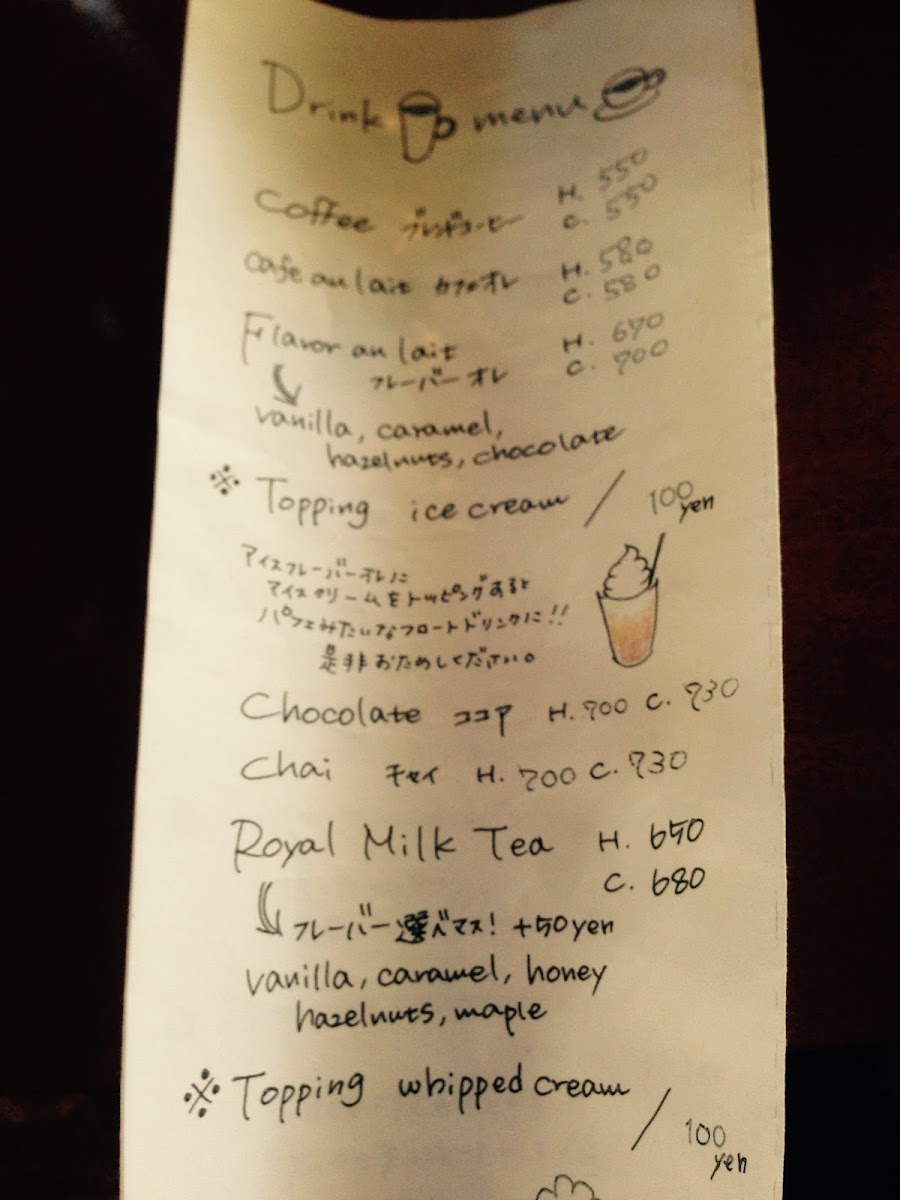 Drink menu
Coffee ブレンドコーヒー H. 550
C. 550
Cafe au lait カフェオレ H. 580
C. 580
Flavor au lait H. 670
フレーバーオレ C. 700
vanilla, caramel,
hazelnuts, chocolate
※ Topping ice cream / 100 yen
アイスフレーバーオレに
アイスクリームをトッピングすると
パフェみたいなフロートドリンクに!!
是非おためしください。
Chocolate ココア H. 700 C. 730
Chai チャイ H. 700 C. 730
Royal Milk Tea H. 650
C. 680
フレーバー選べマス! +50yen
vanilla, caramel, honey
hazelnuts, maple
※ Topping whipped cream / 100 yen